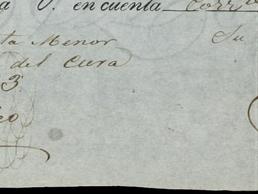 a V. en cuenta Corr
ta Menor Su
del Cura
3